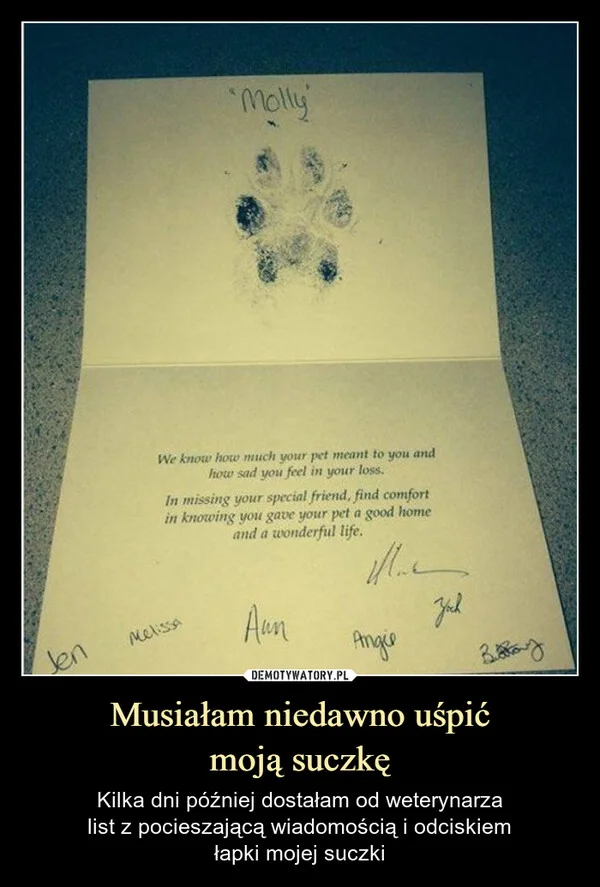 "Molly"
We know how much your pet meant to you and
how sad you feel in your loss.
In missing your special friend, find comfort
in knowing you gave your pet a good home
and a wonderful life.
Jen
Melissa
Ann
Angie
DEMOTYWATORY.PL
Musiałam niedawno uśpić
moją suczkę
Kilka dni później dostałam od weterynarza
list z pocieszającą wiadomością i odciskiem
łapki mojej suczki